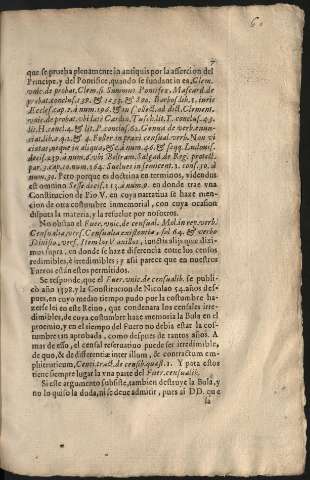 6.
7
que se prueba plenamente in antiquis por la assercion del
Principe, y del Pontifice, quando se fundat in ea, Clem.
vnic. de probat. Clem. si Summus Pontifex, Mascard. de
probat. conclus. 139. & 1233. & 200. Barbos. lib. 1. iuris
Eccles. cap. 2. à num. 196. & in Collect. ad dict. Clement.
vnic. de probat. vbi late Cardin. Tusch. lit. T. conclus. 43.
lit. H. concl. 4. & lit. P. conclus. 62. Genua de verb. enun-
ciat. lib. 2. q. 2. & 4. Foller in praxi censual. verb. Non vi
ciatus, neque in aliqua, & c. à num. 46. & seqq. Ludouis.
decis. 239. à num. 6. vbi Beltram. Salgad. de Reg. protect.
par. 3. cap. 10. num. 164. Suelues in semicent. 1. cons. 30. à
num. 30. Pero porque es doctrina en terminos, videndus
est omnino Sesse decis. 113. à num. 9. en donde trae vna
Constitucion de Pio V. en cuya narratiua se haze men-
cion de otra costumbre inmemorial, con cuya ocasion
disputa la materia, y la resuelue por nosotros.
No obstan el Fuer. vnic. de censual. Molin. rep. verb.
Censualia, vers. Censualia existentia, fol. 64. & verbo
Diuisio, vers. Item lort Y anillos, iuncta alijs que dixi-
mus supra, en donde se haze diferencia entre los censos
redimibles, è irredimibles; y assi parece que en nuestros
Fueros están estos permitidos.
Se responde, que el Fuer. vnic. de censualib. se publi-
cò año 1398. y la Constitucion de Nicolao 54. años des-
pues, en cuyo medio tiempo pudo por la costumbre ha-
zerse lei en este Reino, que condenara los censales irre-
dimibles, de cuya costumbre haze memoria la Bula en el
proemio, y en el tiempo del Fuero no debia estar la cos-
tumbre tan aprobada, como despues de tantos años. A
mas de esso, el censal reseruatiuo puede ser irredimible,
de quo, & de differentiæ inter illum, & contractum em-
phiteuticum, Cenci. tract. de censib. quæst. 1. Y para estos
tiene siempre lugar la vna parte del Fuer. censualib.
Si este argumento subsiste, tambien destruye la Bula, y
no lo quiso la duda, ni se deue admitir, pues ai DD. que
la